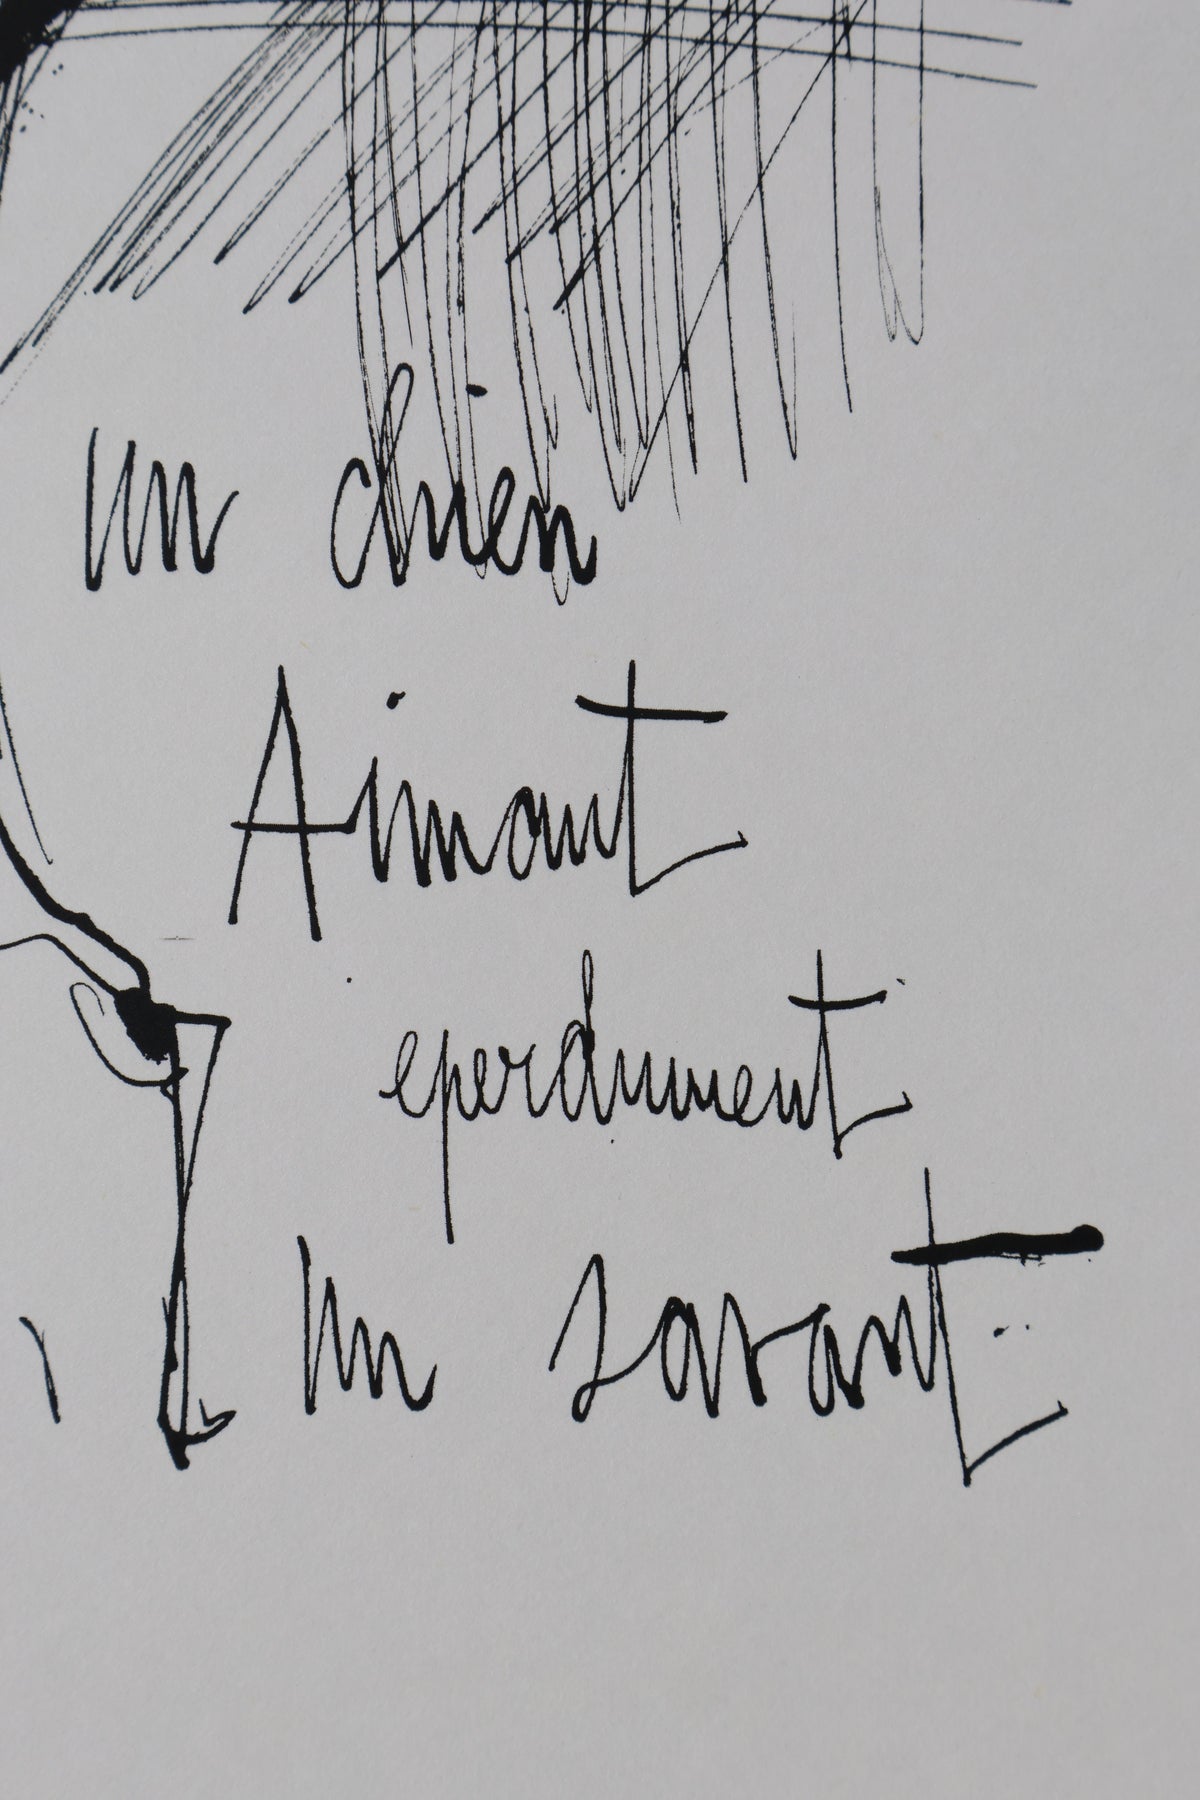 un chien
Aimant
eperdument
un savant